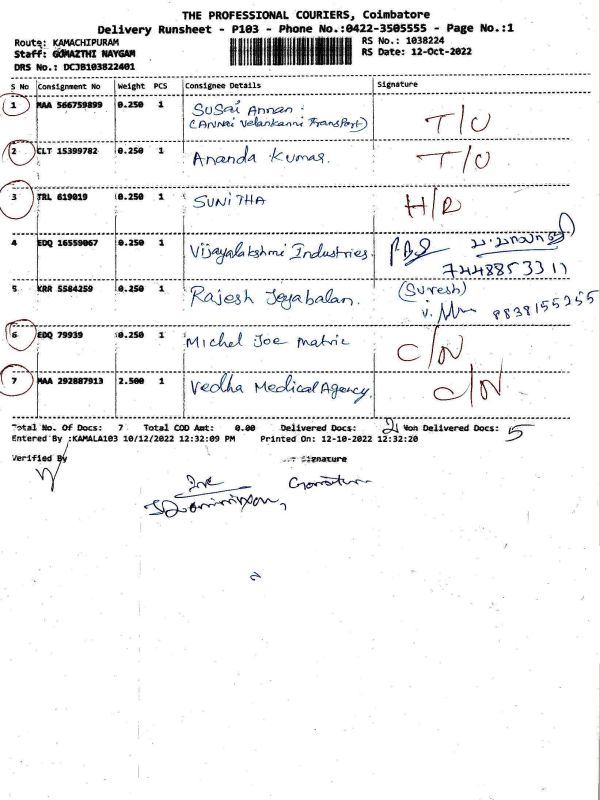 THE PROFESSIONAL COURIERS, Coimbatore
Delivery Runsheet - P103 - Phone No.:0422-3505555 - Page No.:1
Route: KAMACHIPURAM
RS No.: 1038224
Staff: GOMAZTHI NAYGAM
RS Date: 12-Oct-2022
DRS No.: DCJB103822401
S No Consignment No Weight PCS Consignee Details Signature
1 MAA 566759899 0.250 1 SuSai Annan. T/O
(Annai Velankanni Transport)
2 CLT 15399782 0.250 1 Ananda Kumar. T/O
3 TRL 619819 0.250 1 SUNITHA H/D
4 EDQ 16559067 0.250 1 Vijayalakshmi Industries
7448853311
5 KRR 5584259 0.250 1 Rajesh Jeyabalan. (Suresh)
9838155255
6 EDQ 79939 0.250 1 Michel Joe Matric C/N
7 MAA 292887913 2.500 1 Vedha Medical Agency. C/N
Total No. Of Docs: 7 Total COD Amt: 0.00 Delivered Docs: 2 Non Delivered Docs: 5
Entered By :KAMALA103 10/12/2022 12:32:09 PM Printed On: 12-10-2022 12:32:20
Verified By Signature